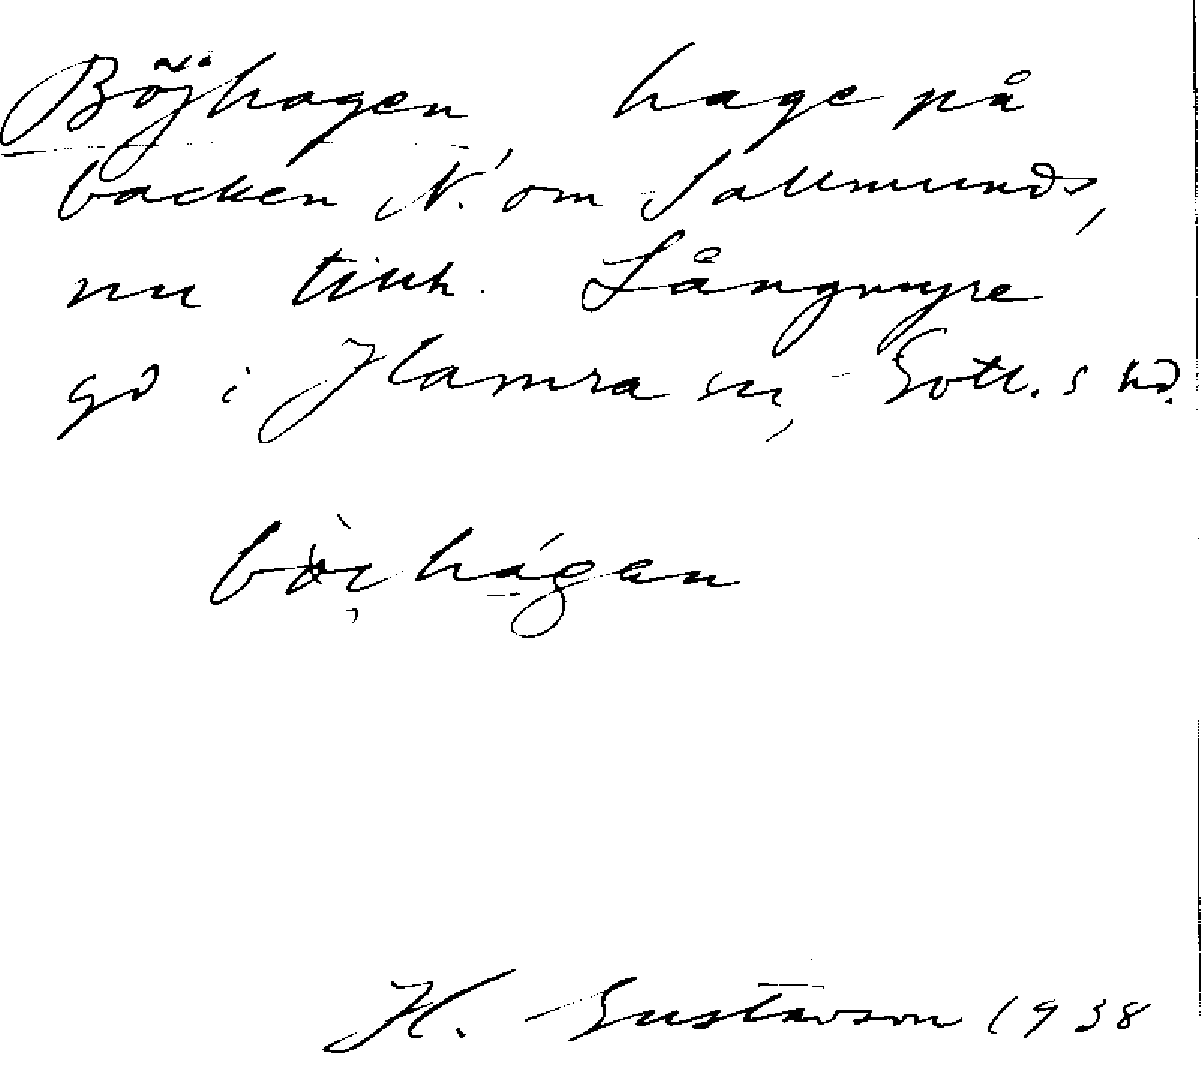 Böjhagen hage på
backen N. om Sallmunds,
nu tillh. Långmyre
gd i Hamra sn, Gotl. s hd.
hagen
H. Gustavson 1938